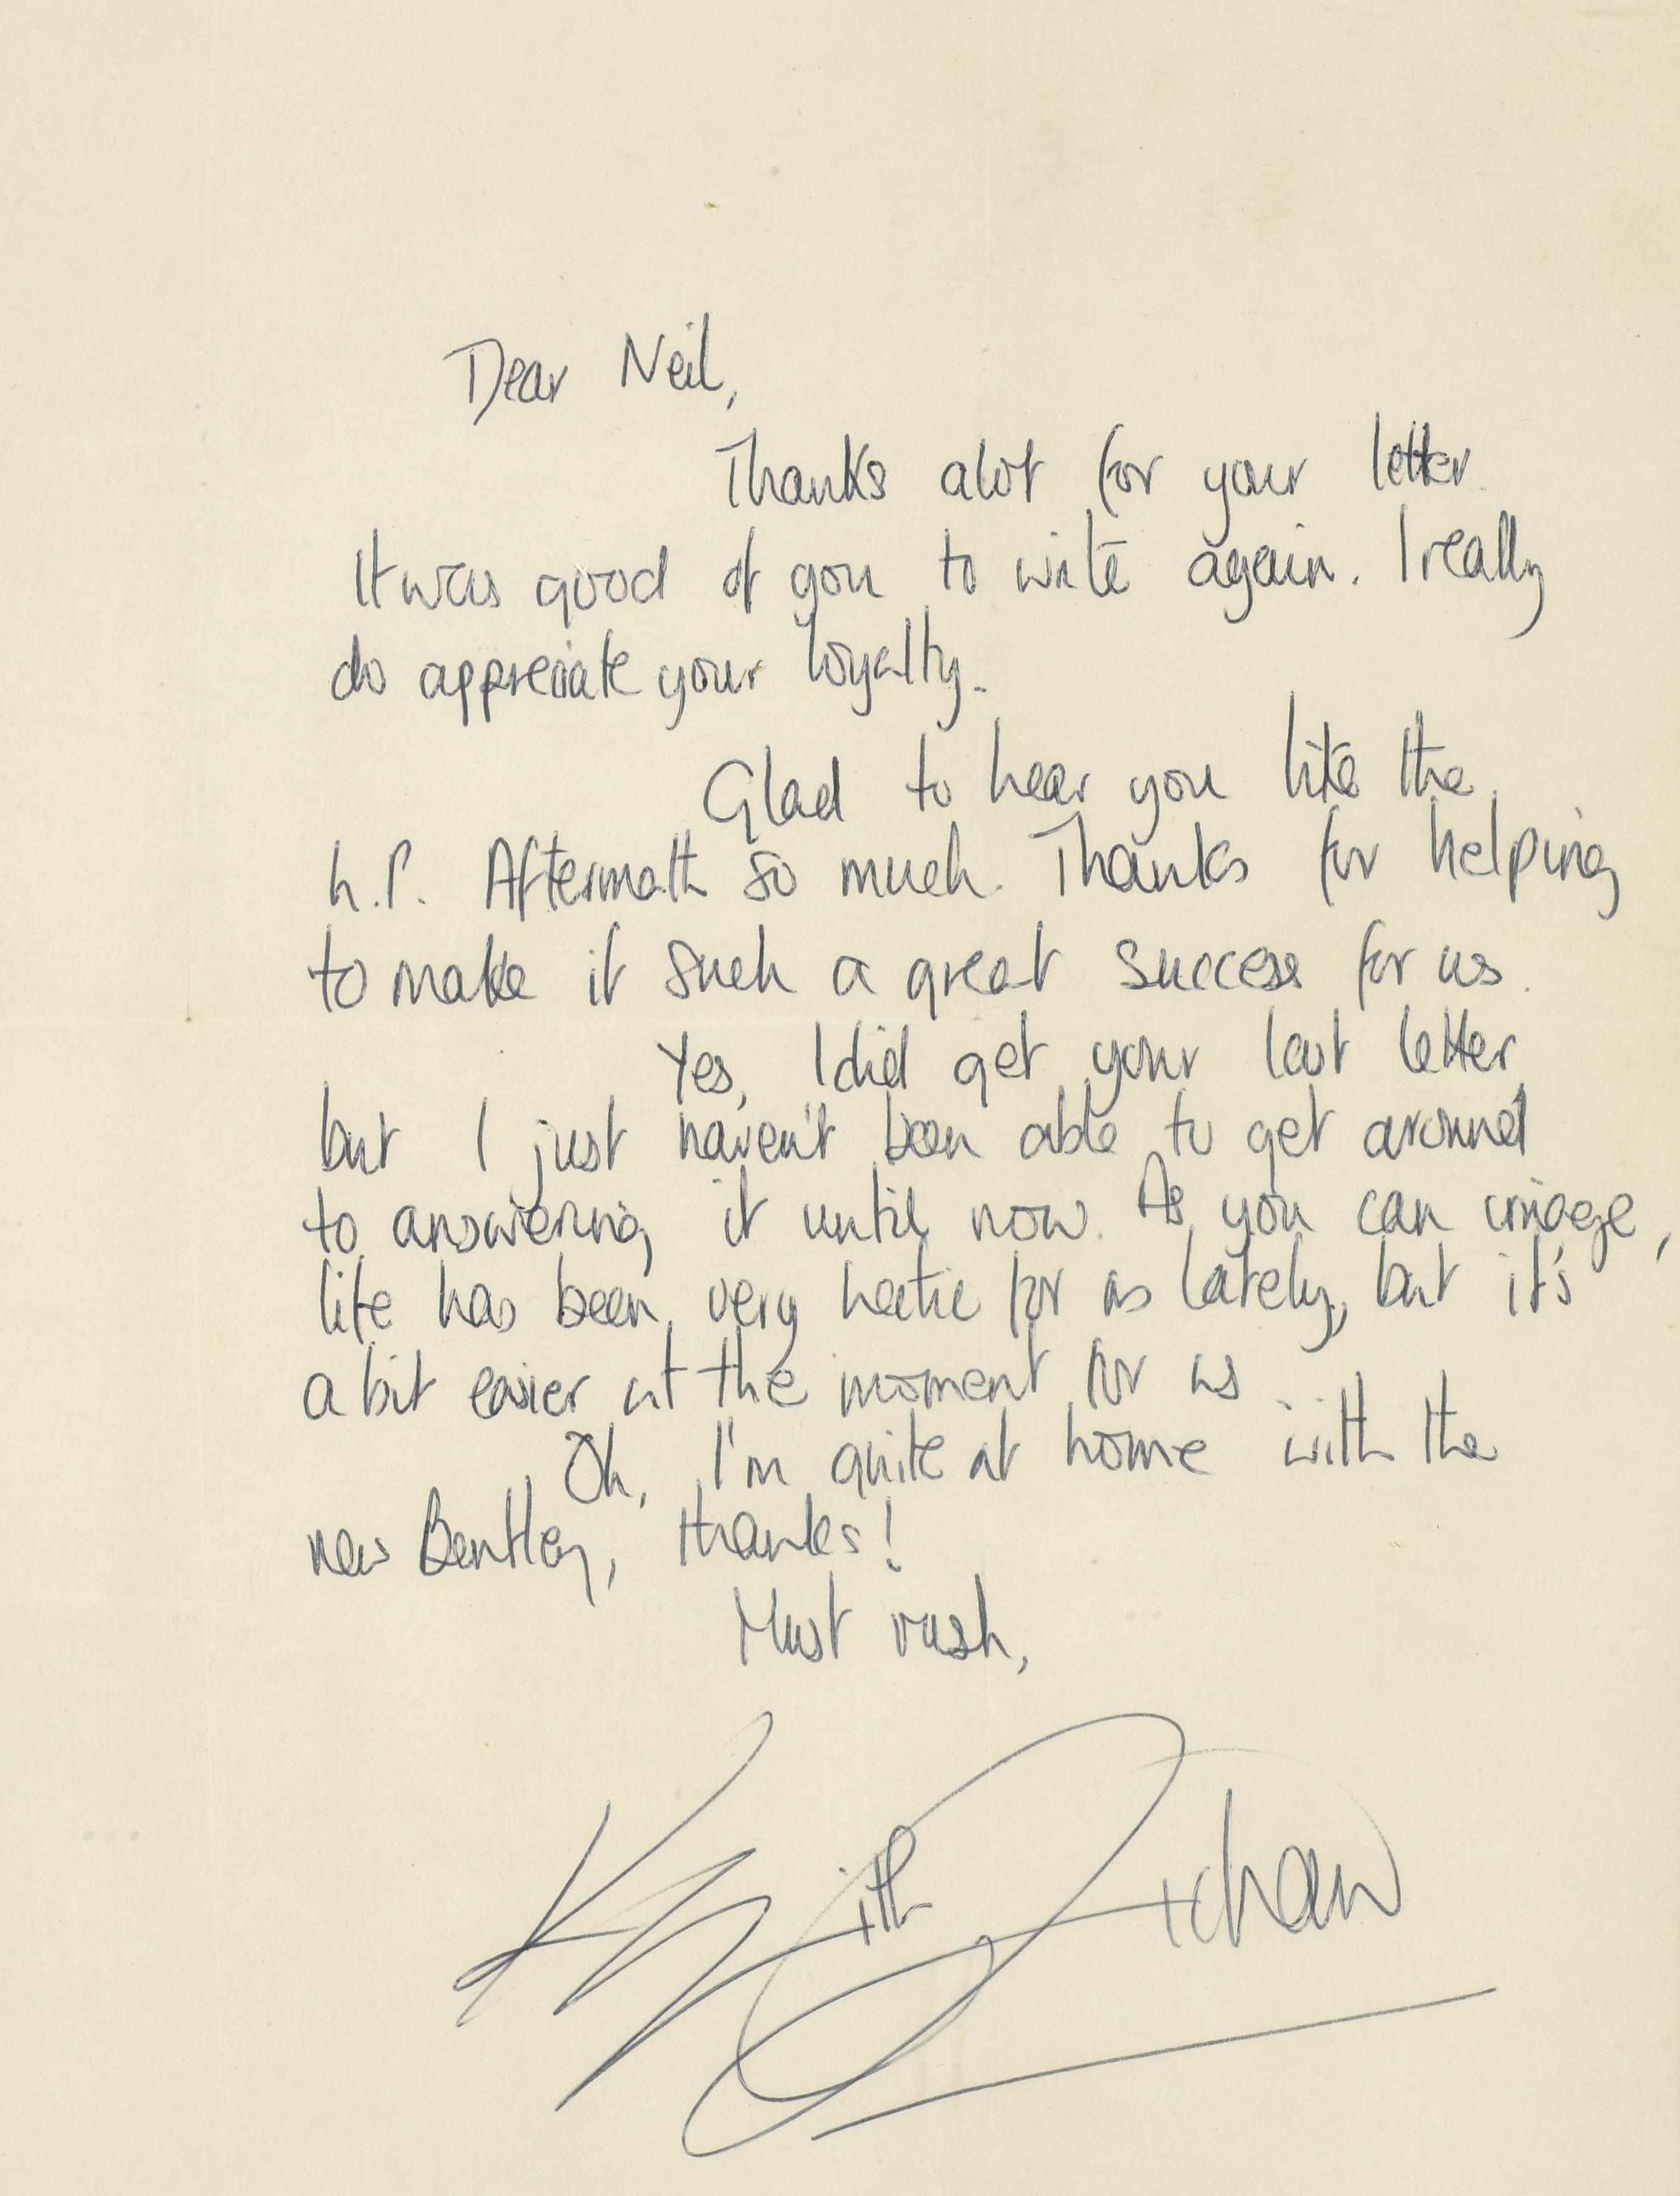 Dear Neil,
Thanks alot for your letter.
It was good of you to write again. I really
do appreciate your loyalty.
Glad to hear you like the
L.P. Aftermath so much. Thanks for helping
to make it such a great success for us.
Yes, I did get your last letter
but I just haven't been able to get around
to answering it until now. As you can imiage,
life has been very hectic for us lately, but it's
a bit easier at the moment for us.
Oh, I'm quite at home with the
new Bentley, thanks!
Must rush,
Keith Richard